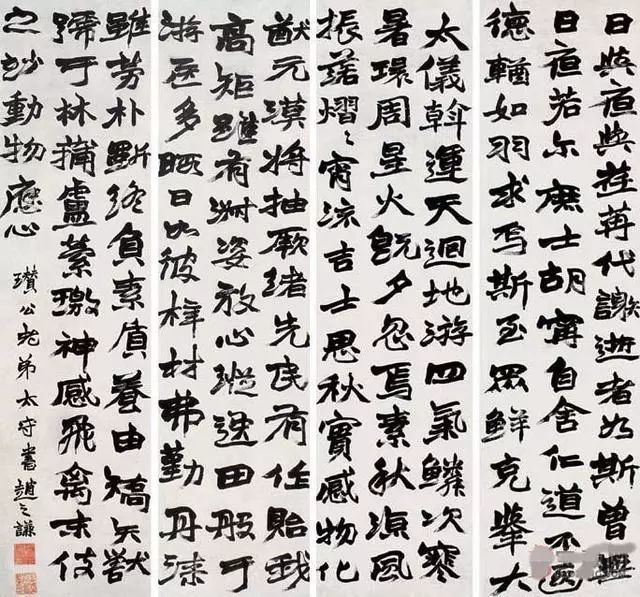 日與夜與荏苒代謝逝者如斯曾無
日夜若尔庶士胡寧自舍仁道不遐
德輶如羽求焉斯至眾鮮克舉大
太儀斡運天迴地游四氣鱗次寒
暑環周星火既夕忽焉素秋涼風
振落熠〻宵流吉士思秋實感物化
猷元漠將抽厥緒先民有作貽我
高矩雖有淑姿放心縱逸田般于
游居多暇日如彼梓材弗勤丹漆
雖勞朴斲終負素質養由矯矢獸
號于林蒱盧縈繳神感飛禽末伎
之妙動物應心
瓚公老弟太守書趙之謙